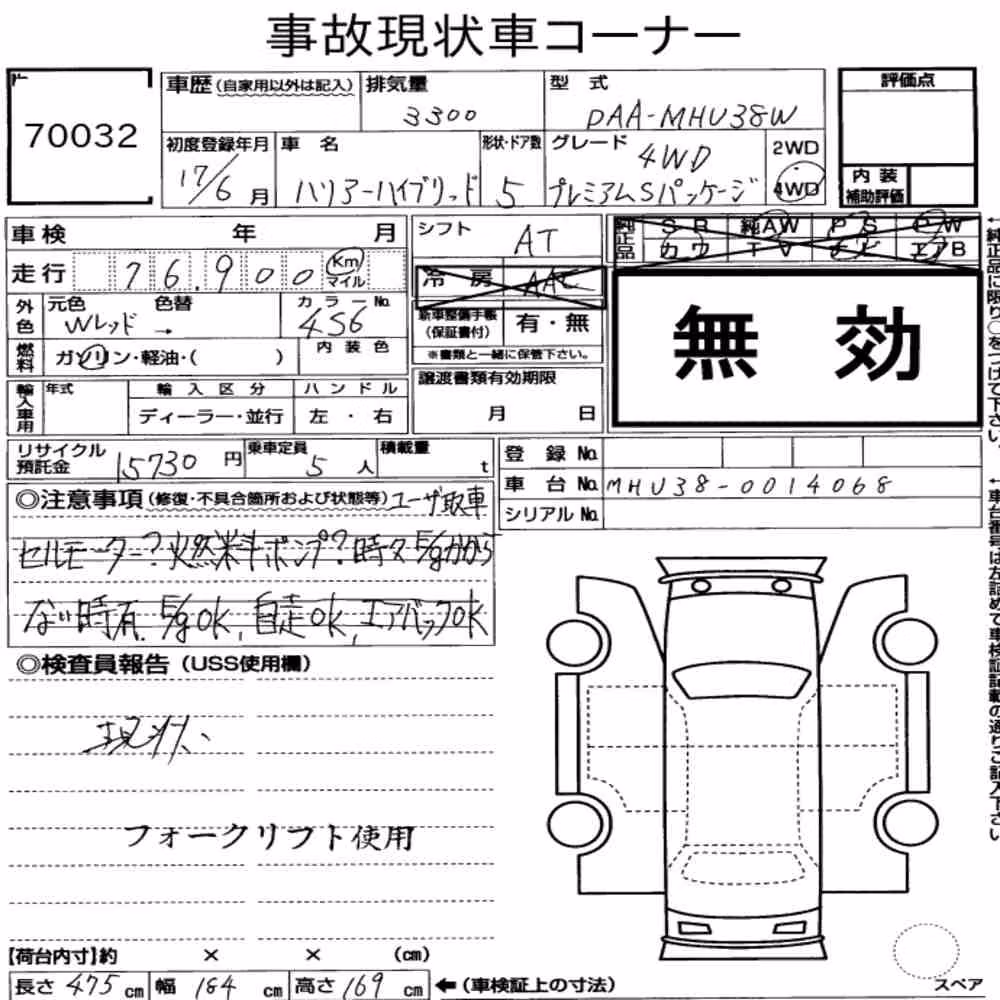 事故現状車コーナー
70032
車歴(自家用以外は記入) 排気量 3300 型式 DAA-MHU38W 評価点
初度登録年月 17/6月 車名 ハリアーハイブリッド 形状・ドア数 5 グレード 4WD プレミアムSパッケージ 2WD 4WD
内装補助評価
車検 年 月 シフト AT
純正品 SR 純AW PS PW
カワ TV ナビ エアB
走行 76,900 Km マイル 冷房 AAC
無効
外色 元色 色替 カラーNo. Wレッド → 4S6
新車整備手帳(保証書付) 有・無
※書類と一緒に保管下さい。
燃料 ガソリン・軽油・( ) 内装色
輸入車用 年式 輸入区分 ハンドル
ディーラー・並行 左・右
譲渡書類有効期限
月 日
リサイクル預託金 15730円 乗車定員 5人 積載量 t
登録No.
車台No. MHU38-0014068
シリアルNo.
◎注意事項(修復・不具合箇所および状態等)ユーザ取車
セルモーター?火燃料ポンプ?時々E/gかから
ない時有.E/gOK,自走OK,エアバックOK
◎検査員報告(USS使用欄)
現状、
フォークリフト使用
【荷台内寸】約 × × (cm)
長さ475cm 幅184cm 高さ169cm ←(車検証上の寸法)
スペア
←純正品に限り○をつけて下さい。
←車台番号は左詰めで車検証記載の通りご記入下さい